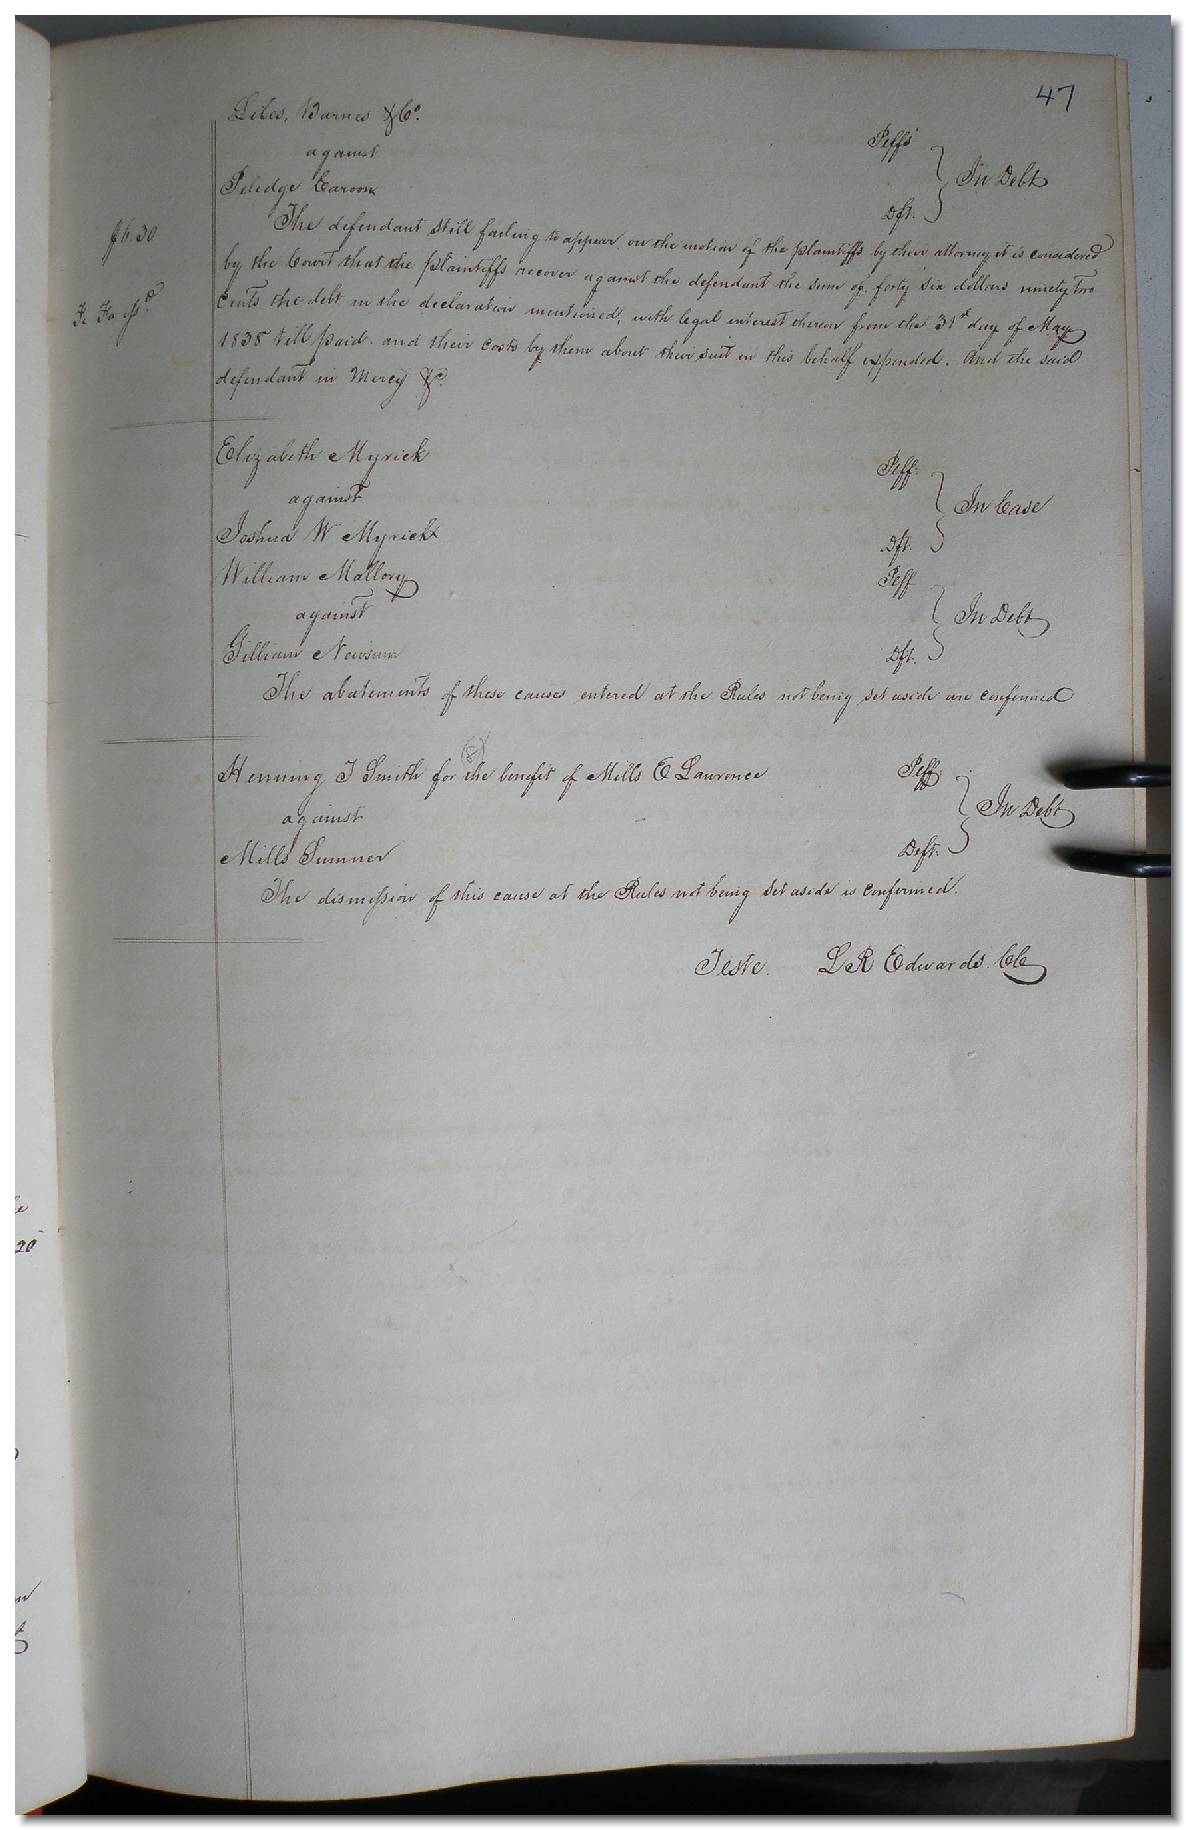 47
Liles, Barnes & Co. Plffs
against In Debt
Peledge Carson Dft.
$6.30
The defendant still failing to appear, on the motion of the plaintiffs by their attorney it is considered
by the Court that the plaintiffs recover against the defendant the sum of forty six dollars ninety two
Fi Fa isd
cents the debt in the declaration mentioned, with legal interest thereon from the 31st day of May
1838 till paid. and their costs by them about their suit in this behalf expended. And the said
defendant in Mercy &c.
Elizabeth Myrick Plff.
against In Case
Joshua W Myrick Dft.
William Mallory Plff
against In Debt
Gilliam Newsum Dft.
The abatements of these causes entered at the Rules not being set aside are confirmed
Henning T Smith for the benefit of Mills E Lawrence Plff.
against In Debt
Mills Sumner Deft.
The dismission of this cause at the Rules not being set aside is confirmed.
Teste. L R Edwards Clk
20